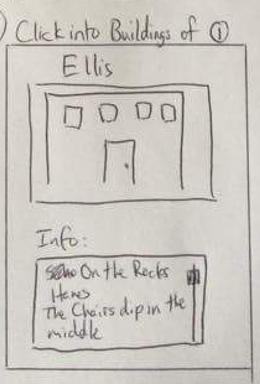 ) Click into Buildings of ①
Ellis
Info:
On the Rocks
Hanes
The Chairs dip in the
middle